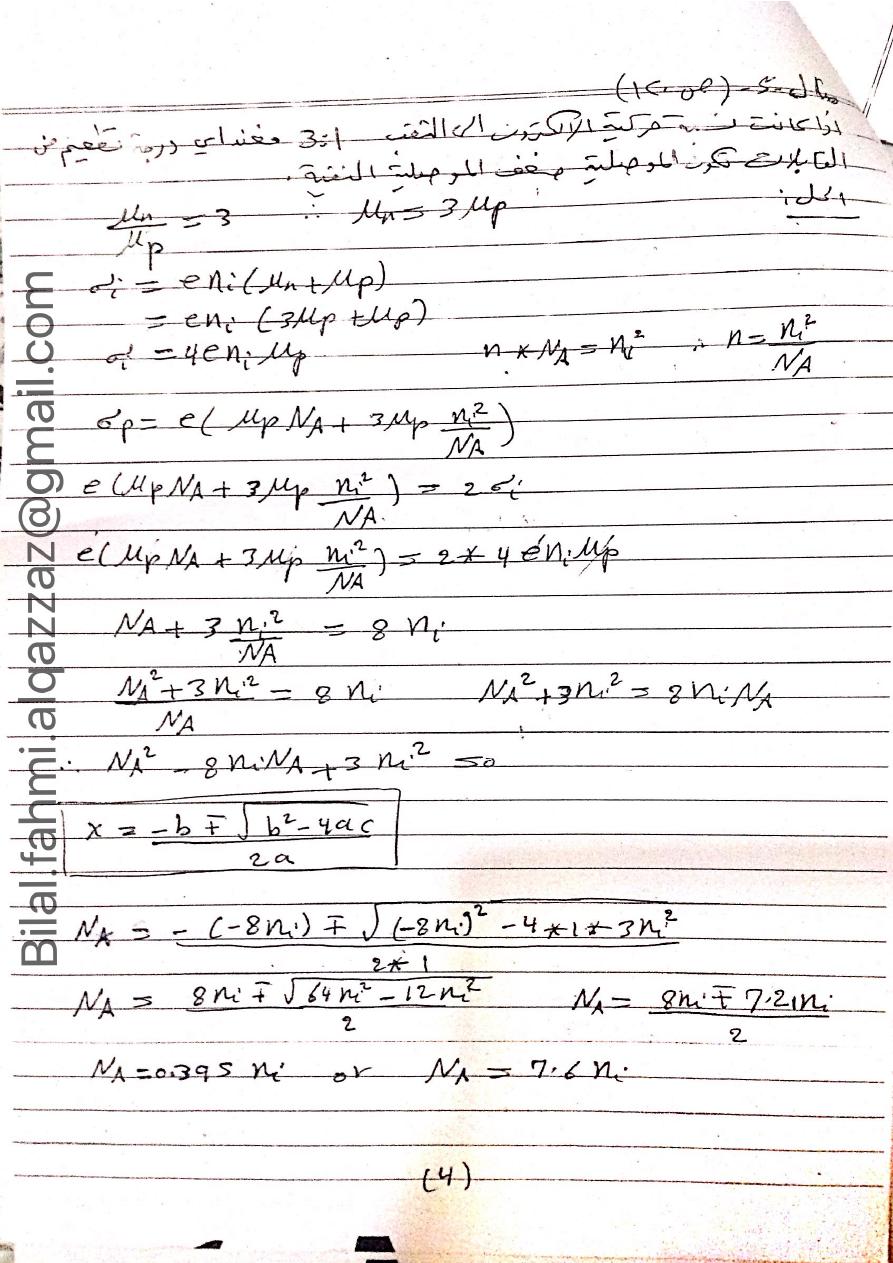 مثال -5- (ص 120)
اذا كانت نسبة حركية الالكترون الى الثقب 3:1 فعند اي درجة تطعيم من
القابلات تكون الموصلية ضعف الموصلية النقية.
الحل:
μn/μp = 3 ∴ μn = 3μp
σi = eni(μn+μp)
= eni (3μp+μp)
σi = 4eni μp n * NA = ni² ∴ n = ni²/NA
σp = e( μp NA + 3μp ni²/NA )
e(μp NA + 3μp ni²/NA) = 2σi
e(μp NA + 3μp ni²/NA) = 2 * 4 e ni μp
NA + 3 ni²/NA = 8 ni
(NA² + 3ni²)/NA = 8 ni NA² + 3ni² = 8 ni NA
∴ NA² - 8 ni NA + 3 ni² = 0
x = (-b ∓ √(b² - 4ac))/2a
NA = (-(-8ni) ∓ √((-8ni)² - 4*1*3ni²))/(2*1)
NA = (8ni ∓ √(64ni² - 12ni²))/2 NA = (8ni ∓ 7.21ni)/2
NA = 0.395 ni or NA = 7.6 ni
(4)
Bilal.fahmi.alqazzaz@gmail.com